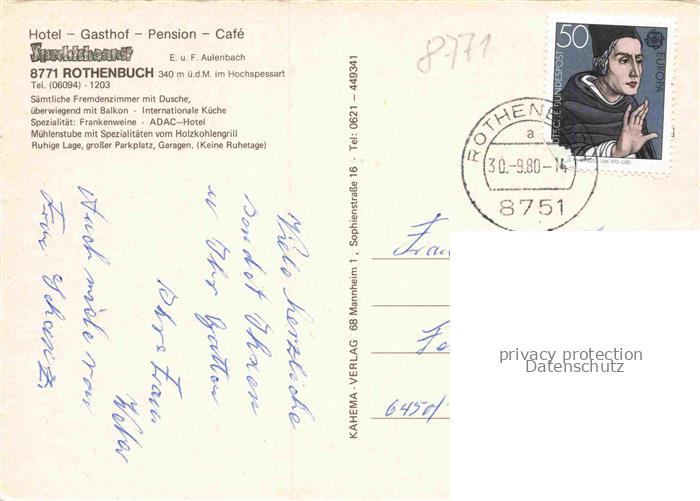 Hotel – Gasthof – Pension – Café
E. u. F. Aulenbach
8771 ROTHENBUCH 340 m ü.d.M. im Hochspessart
Tel. (06094) - 1203
Sämtliche Fremdenzimmer mit Dusche,
überwiegend mit Balkon - Internationale Küche
Spezialität: Frankenweine - ADAC-Hotel
Mühlenstube mit Spezialitäten vom Holzkohlengrill
Ruhige Lage, großer Parkplatz, Garagen. (Keine Ruhetage)
8771
50
EUROPA
DEUTSCHE BUNDESPOST
1193-1280
a
30.-9.80-14
8751
KAHEMA-VERLAG 68 Mannheim 1, Sophienstraße 16 · Tel: 0621 - 449341
Viele herzliche
sendet Ihnen
u Ihr Gatten
Ihre Frau
Weber
Auch viele von
Frau
6450/
privacy protection
Datenschutz